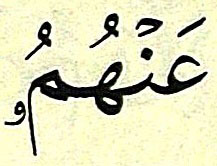 عَنۡهُمُۥ